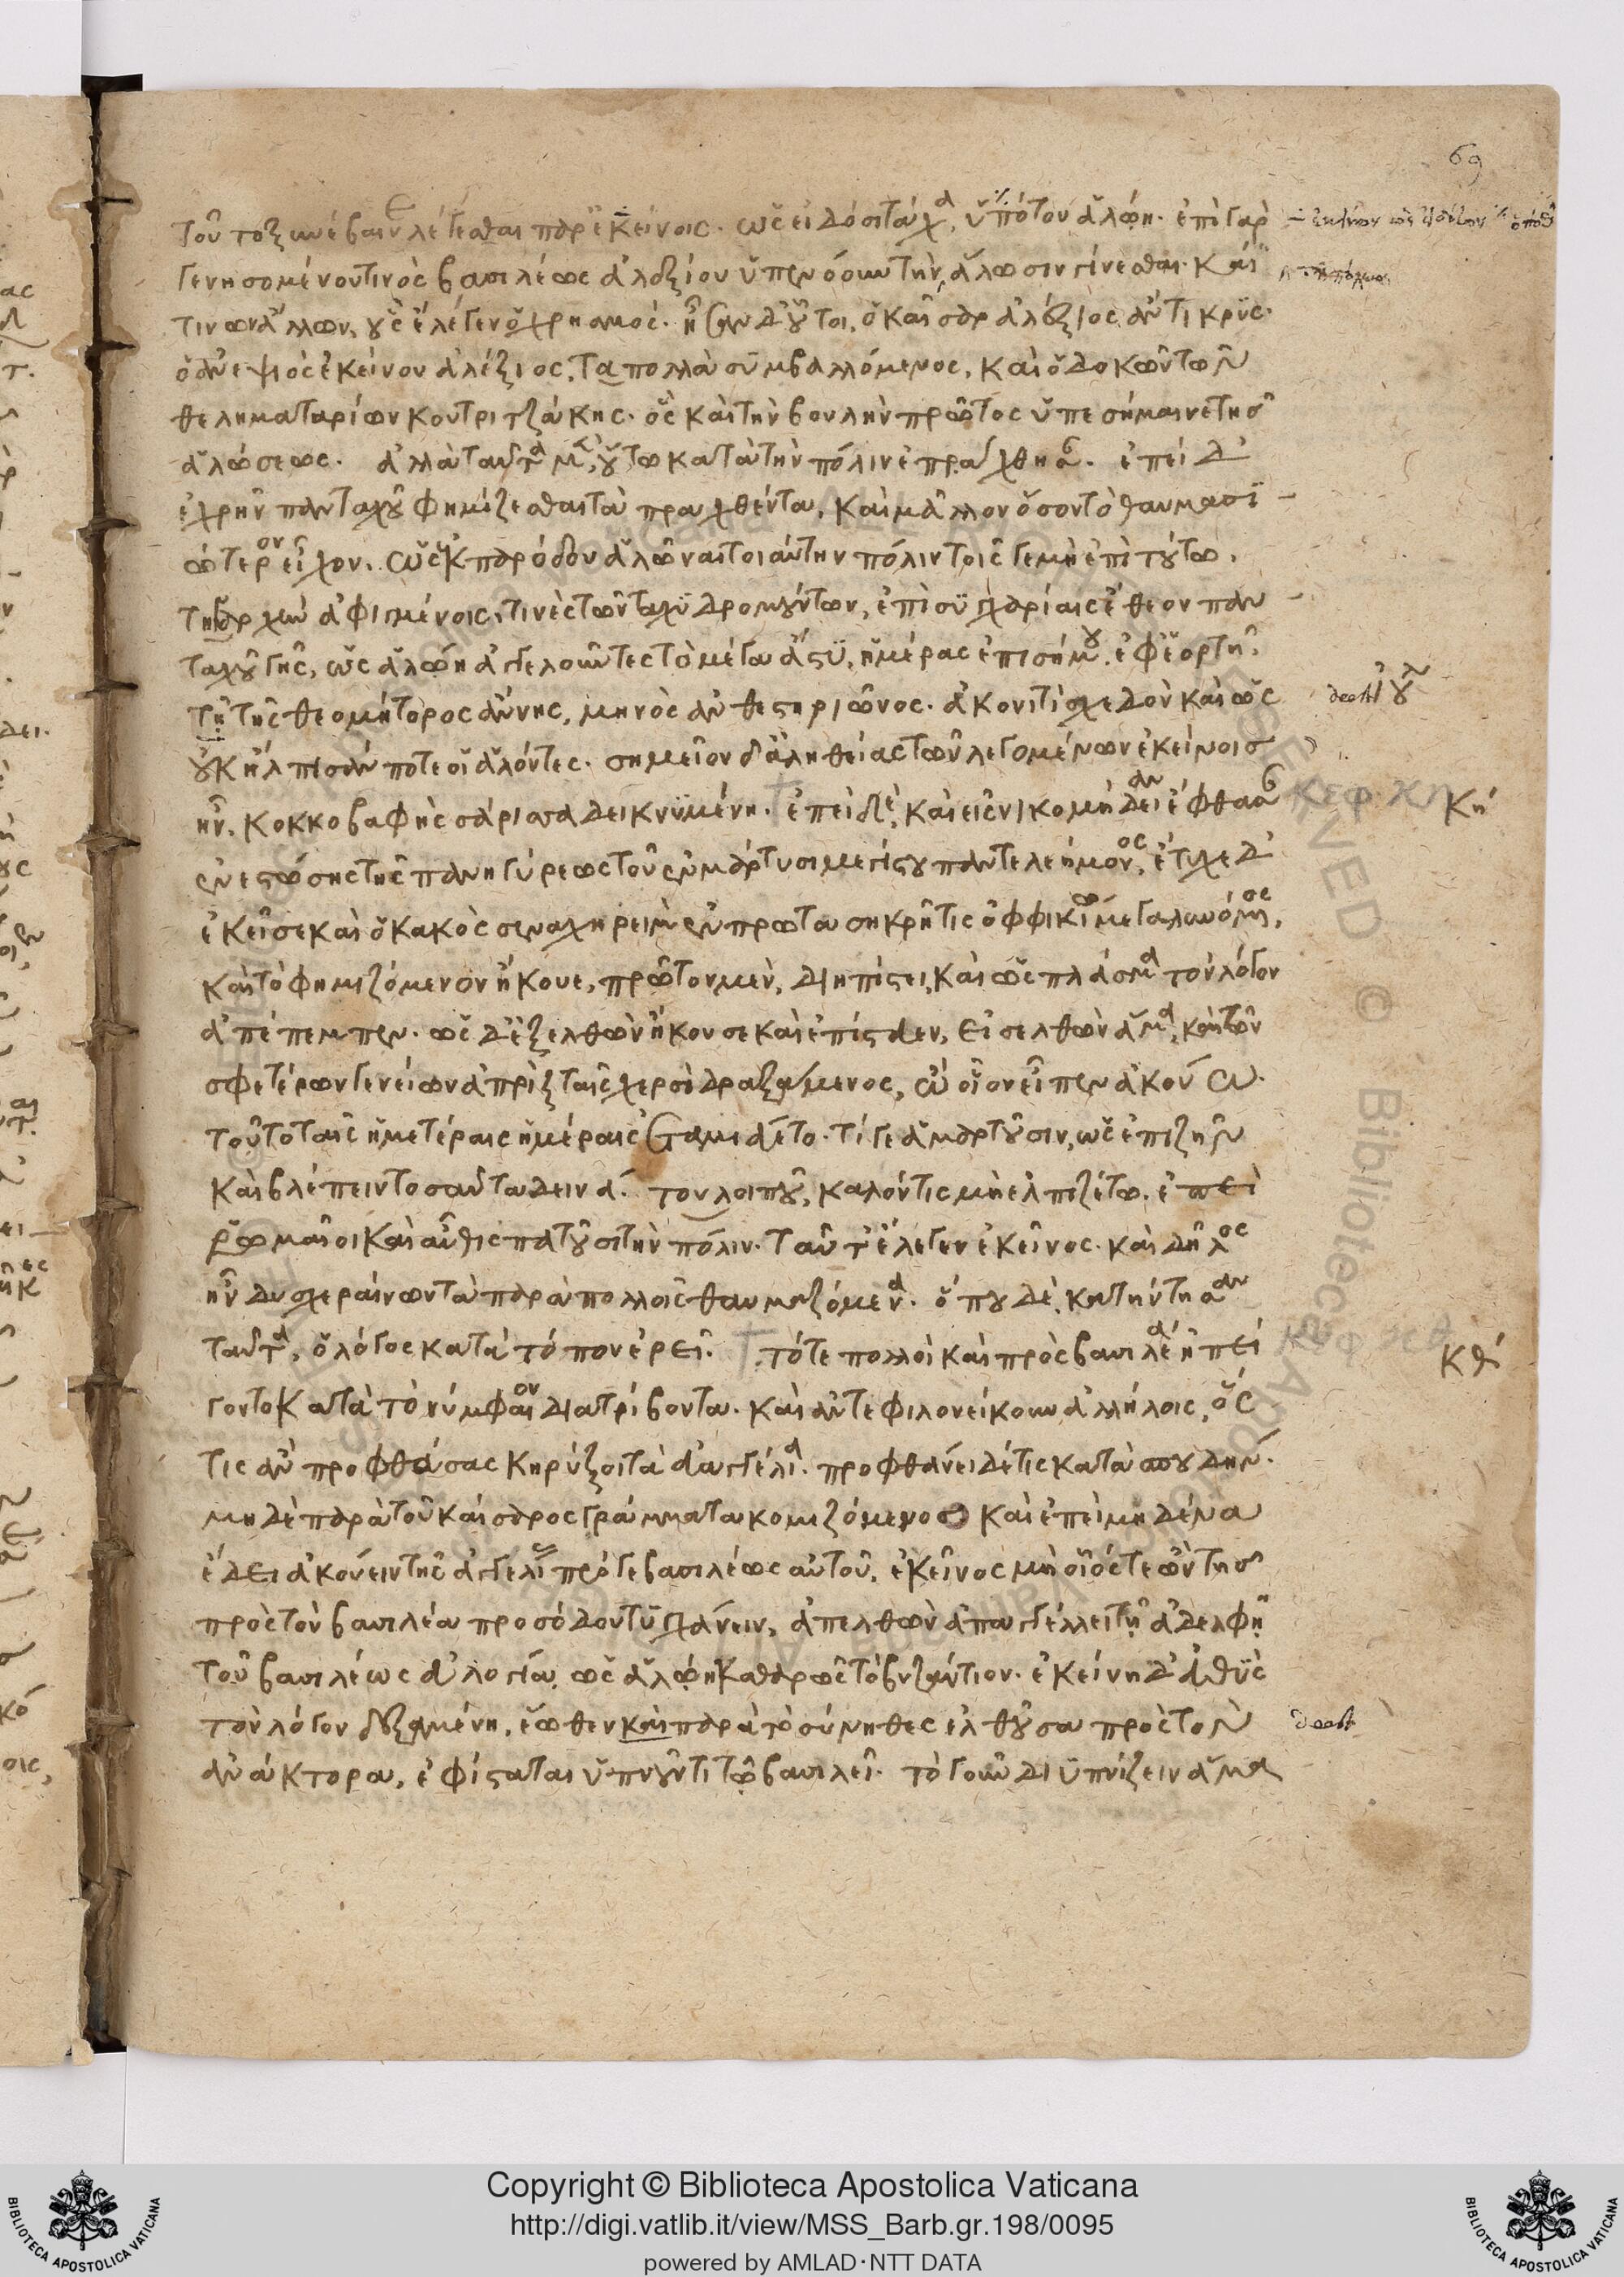 69
τοῦτο ξυνέβαιν λέγεσθαι παρ' ἐκείνοις. ὡς εἰδόσι τάχα, ὑπὸ τοῦ ἁλῴη. ἐπὶ γὰρ
γενησομένου τινὸς βασιλέως ἀλεξίου ὑπενόουν τὴν ἅλωσιν γίνεσθαι. καί
τινων ἄλλων, οὓς ἔλεγεν ὁ χρησμός. ἦσαν δ' οὗτοι, ὁ καῖσαρ ἀλέξιος ἄντικρυς.
ὁ ἀνεψιὸς ἐκείνου ἀλέξιος, τα πολλὰ συμβαλλόμενος, καὶ ὁ δοκῶν τῶν
θεληματαρίων κουτριτζάκης. ὃς καὶ τὴν βουλὴν πρῶτος ὑπεσήμαινε τῆς
ἁλώσεως. ἀλλὰ ταῦτα μὲν, οὕτω κατὰ τὴν πόλιν ἐπράχθησαν. ἐπεὶ δ'
ἐχρῆν πανταχοῦ φημίζεσθαι τὰ πραχθέντα, καὶ μᾶλλον ὅσον τὸ θαυμασι-
ώτερον εἶχον. ὡς ἐκ παρόδου ἁλῶναι τοιαύτην πόλιν τοῖς γε μὴ ἐπὶ τούτῳ,
τὴν ἀρχὴν ἀφιγμένοις, τινὲς τῶν ταχυδρομούντων, ἐπὶ συγχαρίαις ἔθεον παν-
ταχοῦ γῆς, ὡς ἁλῴη ἀγγελοῦντες τὸ μέγα ἄστυ, ἡμέρας ἐπισήμου. ἐφ' ἑορτῇ
τῇ τῆς θεομήτορος ἄννης, μηνὸς ἀνθεστηριῶνος. ἀκονιτὶ σχεδὸν καὶ ὡς
οὐκ ἤλπισάν ποτε οἱ ἁλόντες. σημεῖον δ' ἀληθείας τῶν λεγομένων ἐκείνοις
ἦν, κοκκοβαφὴς σάρισσα δεικνυμένη. ἐπεὶ δὲ, καὶ εἰς νικομήδειαν ἔφθασεν
ἐνεστώσης τῆς πανηγύρεως τοῦ ἐν μάρτυσι μεγίστου παντελεήμονος, ἔτυχε δ'
ἐκεῖσε καὶ ὁ κακὸς σεναχηρεὶμ ἐν πρωτασηκρῆτις ὀφφικίῳ μεγαλυνόμενος,
καὶ τὸ φημιζόμενον ἤκουε, πρῶτον μὲν, διηπίστει, καὶ ὡς πλάσμα τὸν λόγον
ἀπέπεμπεν. ὡς δ' ἐξελθὼν ἤκουσε καὶ ἐπίστευεν, εἰσελθὼν ἅμα, καὶ τῶν
σφετέρων γενείων ἀπρὶξ ταῖς χερσὶ δραξάμενος, ὢ οἷον εἶπεν ἀκούω.
τοῦτο ταῖς ἡμετέραις ἡμέραις ἐταμιεύετο. τί γε ἁμαρτοῦσιν, ὡς ἐπιζῆν
καὶ βλέπειν τοσαῦτα δεινά. τοῦ λοιποῦ, καλόν τις μὴ ἐλπιζέτω. ἐπεὶ
ῥωμαῖοι καὶ αὖθις πατοῦσι τὴν πόλιν. ταῦτ' ἔλεγεν ἐκεῖνος. καὶ δῆλος
ἦν δυσχεραίνων τὰ παρὰ πολλοῖς θαυμαζόμενα. ὅπου δὲ κατήντησαν
ταῦτα, ὁ λόγος κατὰ τόπον ἐρεῖ. τότε πολλοὶ καὶ πρὸς βασιλέα ἠπεί-
γοντο κατὰ τὸ νύμφαιον διατρίβοντα. καὶ ἀντεφιλονείκουν ἀλλήλοις, ὅς
τις ἂν προφθάσας κηρύξοι τὰ εὐαγγέλια. προφθάνει δέ τις κατὰ σπουδήν.
μηδὲ παρὰ τοῦ καίσαρος γράμματα κομιζόμενος. καὶ ἐπεὶ μηδένα
ἔδει ἀκούειν τῆς ἀγγελίας πρό γε βασιλέως αὐτοῦ, ἐκεῖνος μὴ οἷός τε ὢν τῆς
πρὸς τὸν βασιλέα προσόδου τυγχάνειν, ἀπελθὼν ἀπαγγέλλει τῇ ἀδελφῇ
τοῦ βασιλέως εὐλογίᾳ, ὡς ἁλῴη καθαρῶς τὸ βυζάντιον. ἐκείνη δ' εὐθὺς
τὸν λόγον δεξαμένη, ἕωθεν καὶ παρὰ τὸ σύνηθες ἐλθοῦσα πρὸς τὸν
ἀνάκτορα, ἐφίσταται ὑπνοῦντι τῷ βασιλεῖ. τὸ γοῦν διϋπνίζειν ἅμα
deest
κή
κθ
deest
Copyright © Biblioteca Apostolica Vaticana
http://digi.vatlib.it/view/MSS_Barb.gr.198/0095
powered by AMLAD·NTT DATA
BIBLIOTECA APOSTOLICA VATICANA
BIBLIOTECA APOSTOLICA VATICANA